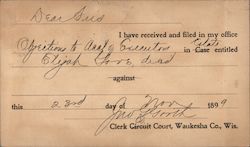 Dear Sirs
I have received and filed in my office
Objections to Acct of Executors
in Case entitled Estate
Elijah Love, dead
against
this 23rd day of Nov 1899
Clerk Circuit Court, Waukesha Co., Wis.